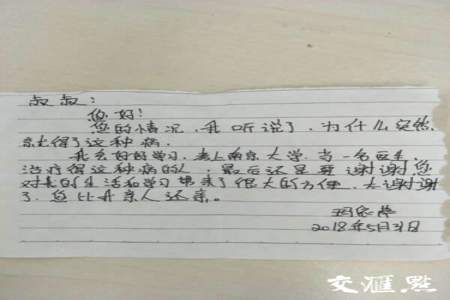 叔叔:
您好!
您的情况,我听说了,为什么突然
就得了这种病。
我会好好学习,考上南京大学,当一名医生,
治疗得这种病的人,最后还是要谢谢您
对我的生活和学习带来了很大的方便,太谢谢
了,您比我亲人还亲。
2018年5月31日
交汇点